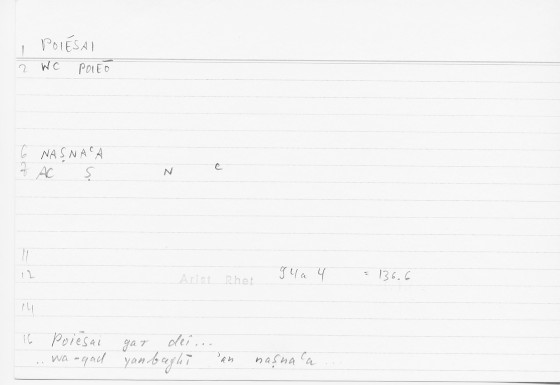 1 POIĒSAI
2 WC POIEŌ
6 NAṢNAᶜA
7 AC Ṣ N C
11
12 Arist Rhet 94a 4 = 136.6
14
16 Poiēsai gar dei...
.. wa-qad yanbaghī 'an naṣnaᶜa